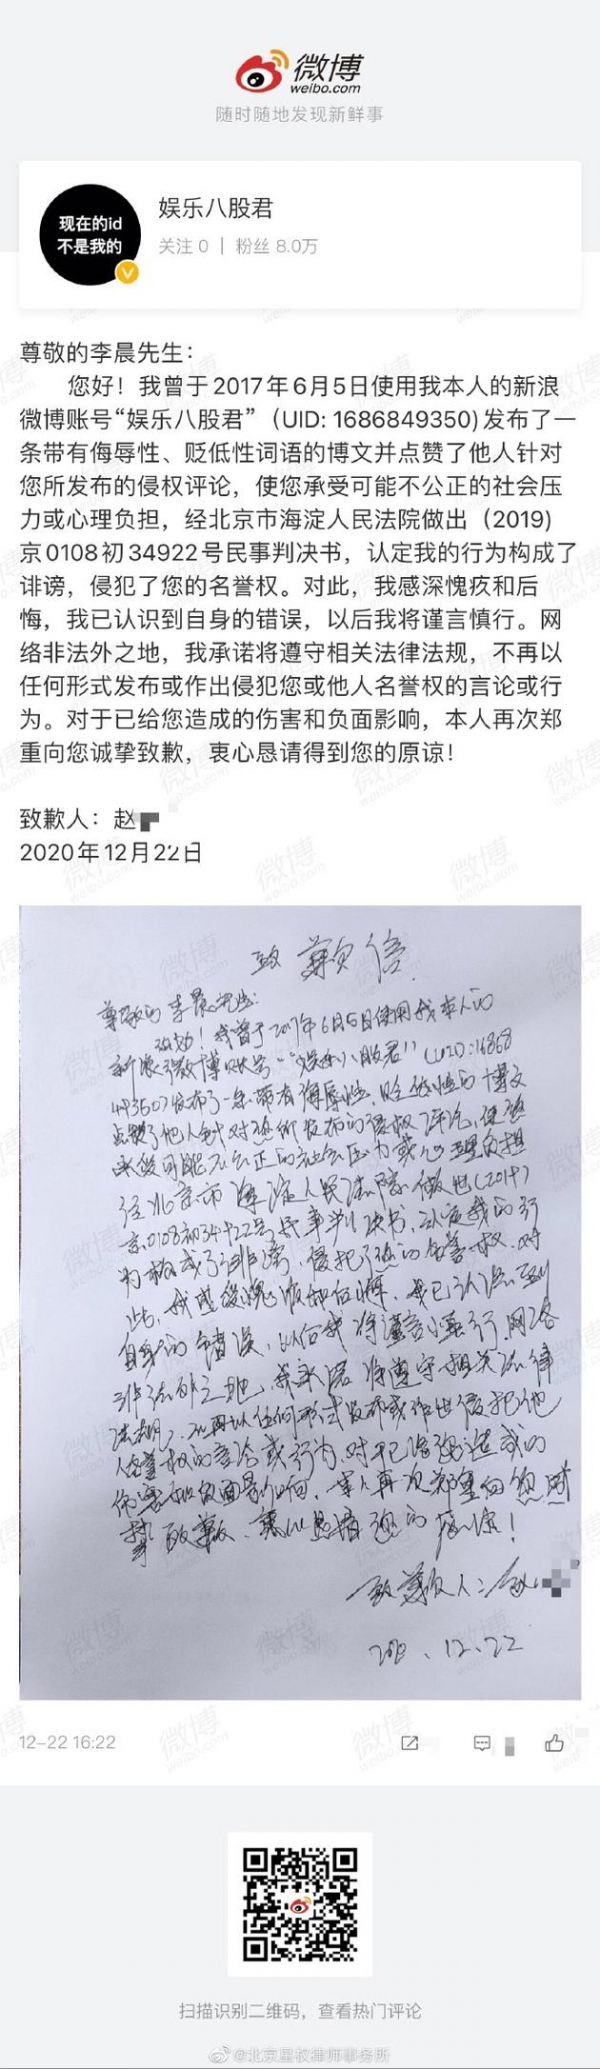 微博
weibo.com
随时随地发现新鲜事
现在的id
不是我的
娱乐八股君
关注 0 | 粉丝 8.0万
尊敬的李晨先生：
您好！我曾于2017年6月5日使用我本人的新浪
微博账号“娱乐八股君”（UID: 1686849350)发布了一
条带有侮辱性、贬低性词语的博文并点赞了他人针对
您所发布的侵权评论，使您承受可能不公正的社会压
力或心理负担，经北京市海淀人民法院做出（2019）
京0108初34922号民事判决书，认定我的行为构成了
诽谤，侵犯了您的名誉权。对此，我感深愧疚和后
悔，我已认识到自身的错误，以后我将谨言慎行。网
络非法外之地，我承诺将遵守相关法律法规，不再以
任何形式发布或作出侵犯您或他人名誉权的言论或行
为。对于已给您造成的伤害和负面影响，本人再次郑
重向您诚挚致歉，衷心恳请得到您的原谅！
致歉人：赵
2020年12月22日
致歉信
尊敬的李晨先生：
您好！我曾于2017年6月5日使用我本人的
新浪微博账号“娱乐八股君”（UID:16868
49350)发布了一条带有侮辱性、贬低性的博文
点赞了他人针对您所发布的侵权评论，使您
承受可能不公正的社会压力或心理负担
经北京市海淀人民法院做出（2019）
京0108初34922号民事判决书，认定我的行
为构成了诽谤，侵犯了您的名誉权．对
此，我感深愧疚和后悔，我已认识到
自身的错误，以后我将谨言慎行．网络
非法外之地，我承诺将遵守相关法律
法规，不再以任何形式发布或作出侵犯他
人名誉权的言论或行为．对于已给您造成的
伤害和负面影响，本人再次郑重向您诚
挚致歉、衷心恳请您的原谅！
致歉人：赵
2020.12.22
12-22 16:22
扫描识别二维码，查看热门评论
@北京星权律师事务所